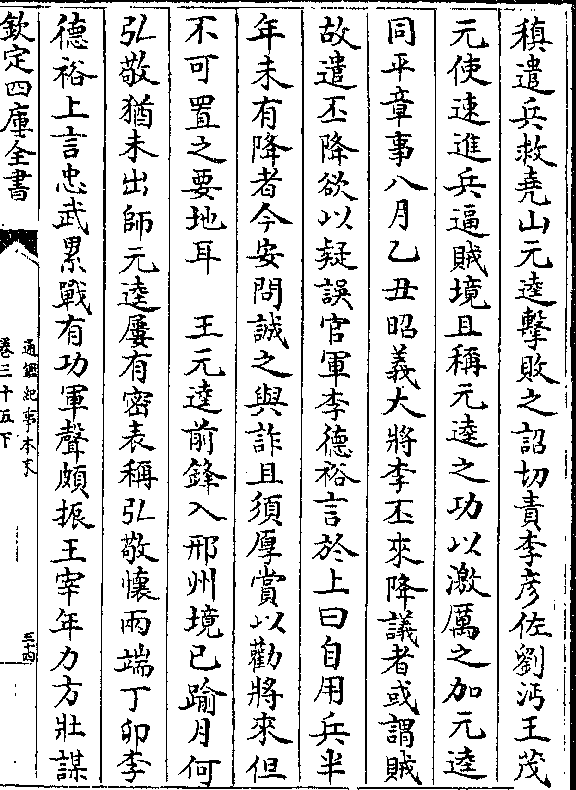 稹遣兵救堯山元逵擊敗之詔切責李彦佐劉沔王茂
元使速進兵逼賊境且稱元逵之功以激厲之加元逵
同平章事八月乙丑昭義大將李丕來降議者或謂賊
故遣丕降欲以疑誤官軍李德裕言於上曰自用兵半
年未有降者今安問誠之與詐且須厚賞以勸將來但
不可置之要地耳　王元逵前鋒入邢州境已踰月何
弘敬猶未出師元逵屢有密表稱弘敬懷兩端丁卯李
德裕上言忠武累戰有功軍聲頗振王宰年力方壯謀
欽定四庫全書
通鑑紀事本末
卷三十五下
三十四